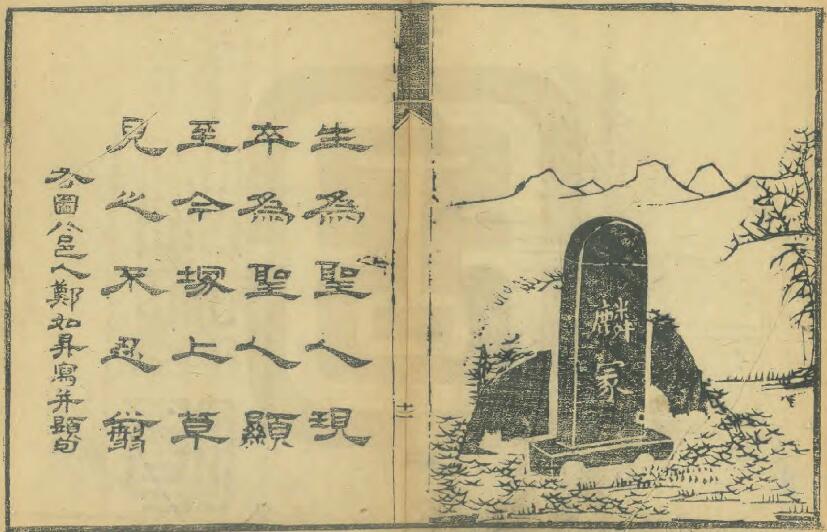 麟冢
十二
生為聖人現
卒為聖人顯
至今塚上草
見之不忍翦
圖邑人鄭如昇寫并題句